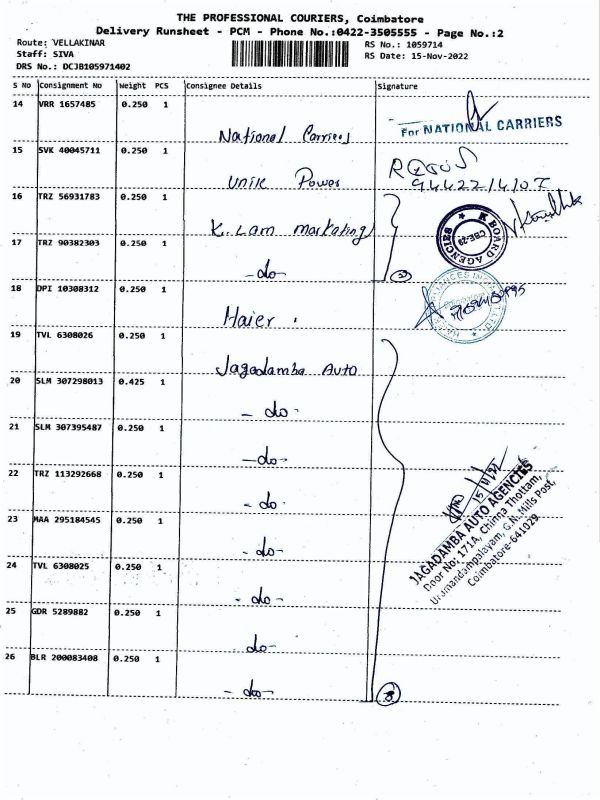 THE PROFESSIONAL COURIERS, Coimbatore
Delivery Runsheet - PCM - Phone No.:0422-3505555 - Page No.:2
Route: VELLAKINAR
RS No.: 1059714
Staff: SIVA
RS Date: 15-Nov-2022
DRS No.: DCJB105971402
S No Consignment No Weight PCS Consignee Details Signature
14 VRR 1657485 0.250 1
National Carriers
For NATIONAL CARRIERS
15 SVK 40045711 0.250 1
Unik Power
16 TRZ 56931783 0.250 1
K. Lam marketing
K BOARD AGENCIES
CBE-29
17 TRZ 90382303 0.250 1
- do -
18 DPI 10308312 0.250 1
Haier .
19 TVL 6308026 0.250 1
Jagadamba Auto
20 SLM 307298013 0.425 1
- do -
21 SLM 307395487 0.250 1
- do -
22 TRZ 113292668 0.250 1
- do -
23 MAA 295184545 0.250 1
- do -
24 TVL 6308025 0.250 1
- do -
25 GDR 5289882 0.250 1
do -
26 BLR 200083408 0.250 1
- do -
JAGADAMBA AUTO AGENCIES
Door No: 171A, Chinna Thottam,
Urumandampalayam, G.N. Mills Post,
Coimbatore-641029.